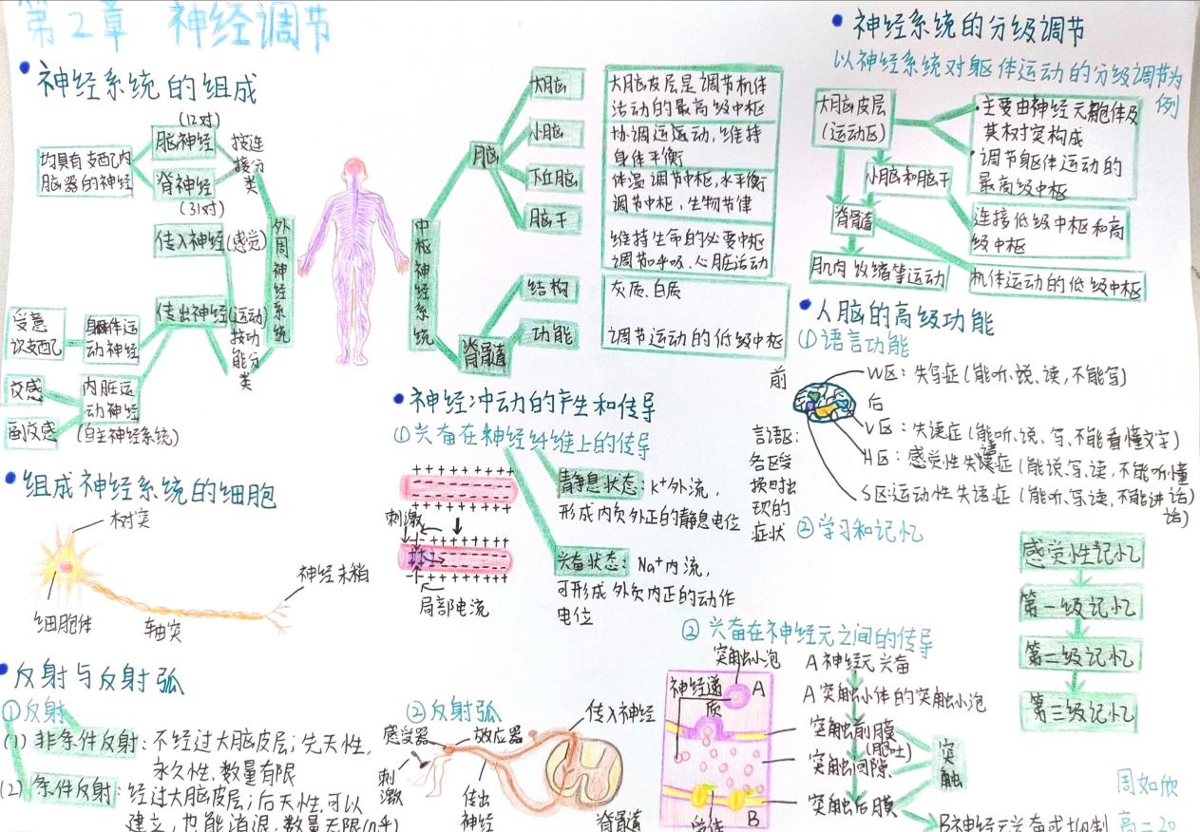 第2章 神经调节
神经系统的组成
(12对)
脑神经
脊神经
(31对)
按连
接分
类
均具有支配内
脏器的神经
传入神经(感觉)
传出神经(运动)
按功
能分
类
外周神经系统
受意
识支配
躯体运
动神经
交感
副交感
内脏运
动神经
(自主神经系统)
中枢神经系统
脑
大脑
小脑
下丘脑
脑干
大脑皮层是调节机体
活动的最高级中枢
协调运动,维持
身体平衡
体温调节中枢,水平衡
调节中枢,生物节律
维持生命的必要中枢
调节呼吸、心脏活动
脊髓
结构
功能
灰质、白质
调节运动的低级中枢
神经系统的分级调节
以神经系统对躯体运动的分级调节为
例
大脑皮层
(运动区)
主要由神经元胞体及
其树突构成
调节躯体运动的
最高级中枢
小脑和脑干
连接低级中枢和高
级中枢
脊髓
机体运动的低级中枢
肌肉收缩等运动
人脑的高级功能
①语言功能
前
后
W区:失写症(能听、说、读,不能写)
V区:失读症(能听、说、写、不能看懂文字)
H区:感觉性失语症(能说、写、读,不能听懂
话)
S区:运动性失语症(能听、写、读,不能讲
话)
言语区:
各区受
损时出
现的
症状
②学习和记忆
感觉性记忆
第一级记忆
第二级记忆
第三级记忆
组成神经系统的细胞
树突
细胞体
轴突
神经末梢
神经冲动的产生和传导
①兴奋在神经纤维上的传导
刺激
局部电流
静息状态:K⁺外流,
形成内负外正的静息电位
兴奋状态:Na⁺内流,
可形成外负内正的动作
电位
②兴奋在神经元之间的传导
突触小泡
神经递
质
A
B
A神经元兴奋
A突触小体的突触小泡
突触前膜
(胞吐)
突触间隙
突触后膜
突触
B神经元兴奋或抑制
反射与反射弧
①反射
(1) 非条件反射:不经过大脑皮层;先天性,
永久性、数量有限
(2) 条件反射:经过大脑皮层;后天性,可以
建立,也能消退,数量无限(几乎)
②反射弧
感受器
效应器
传入神经
刺激
传出
神经
脊髓
周如欣
高二20